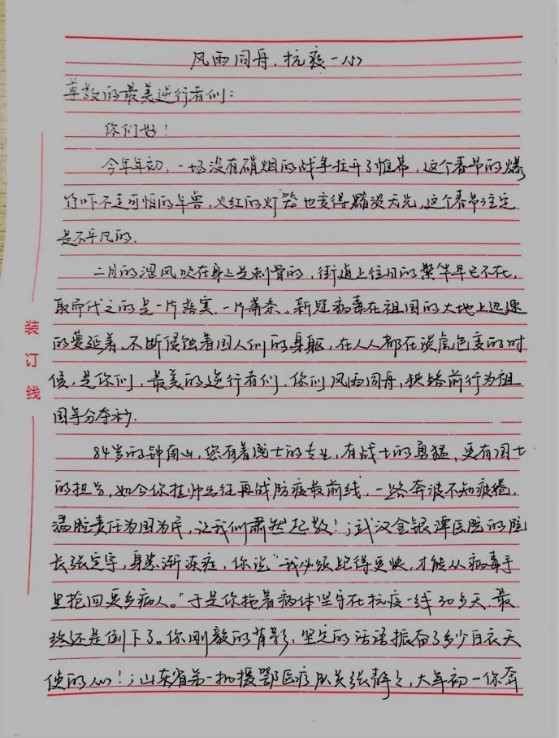 风雨同舟,抗疫一心
尊敬的最美逆行者们:
你们好!
今年年初,一场没有硝烟的战争拉开了帷幕,这个春节的爆
竹吓不走可怕的年兽,火红的灯笼也变得黯淡无光,这个春节注定
是不平凡的.
二月的湿风吹在身上是刺骨的,街道上往日的繁华早已不在,
取而代之的是一片寂寞.一片萧条.新冠病毒在祖国的大地上迅速
的蔓延着,不断侵蚀着国人们的身躯,在人人都在谈虎色变的时
候,是你们,最美的逆行者们.你们风雨同舟,披荆前行为祖
国争分夺秒.
84岁的钟南山,您有着院士的专业,有战士的勇猛,更有国士
的担当,如今你挂帅出征再战防疫最前线.一路奔波不知疲倦,
满腔责任为国为民,让我们肃然起敬!;武汉金银潭医院的院
长张定宇,身患渐冻症,你说"我必须跑得更快,才能从病毒手
里抢回更多病人。"于是你拖着病体坚守在抗疫一线30多天,最
终还是倒下了。你刚毅的背影,坚定的话语振奋了多少白衣天
使的心!;山东省第一批援鄂医疗队员张静静,大年初一你奔
装
订
线